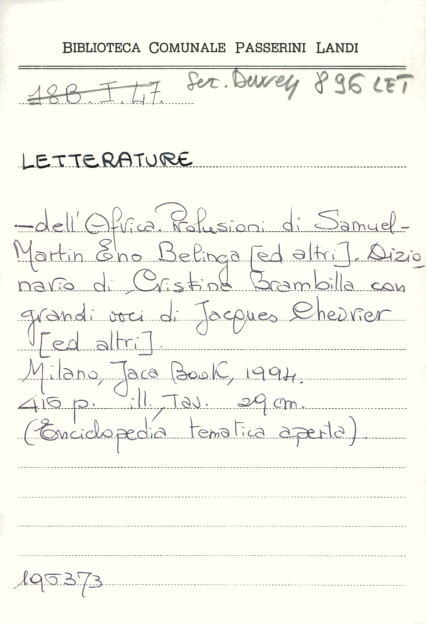 BIBLIOTECA COMUNALE PASSERINI LANDI
18B.I.47. Sez. Dewey 896 LET
LETTERATURE
-dell'Africa. Prolusioni di Samuel-
Martin Eno Belinga [ed altri]. Dizio_
nario di Cristina Brambilla con
grandi voci di Jacques Chevrier
[ed altri].
Milano, Jaca Book, 1994.
416 p. ill., Tav. 29 cm.
(Enciclopedia tematica aperta).
195373